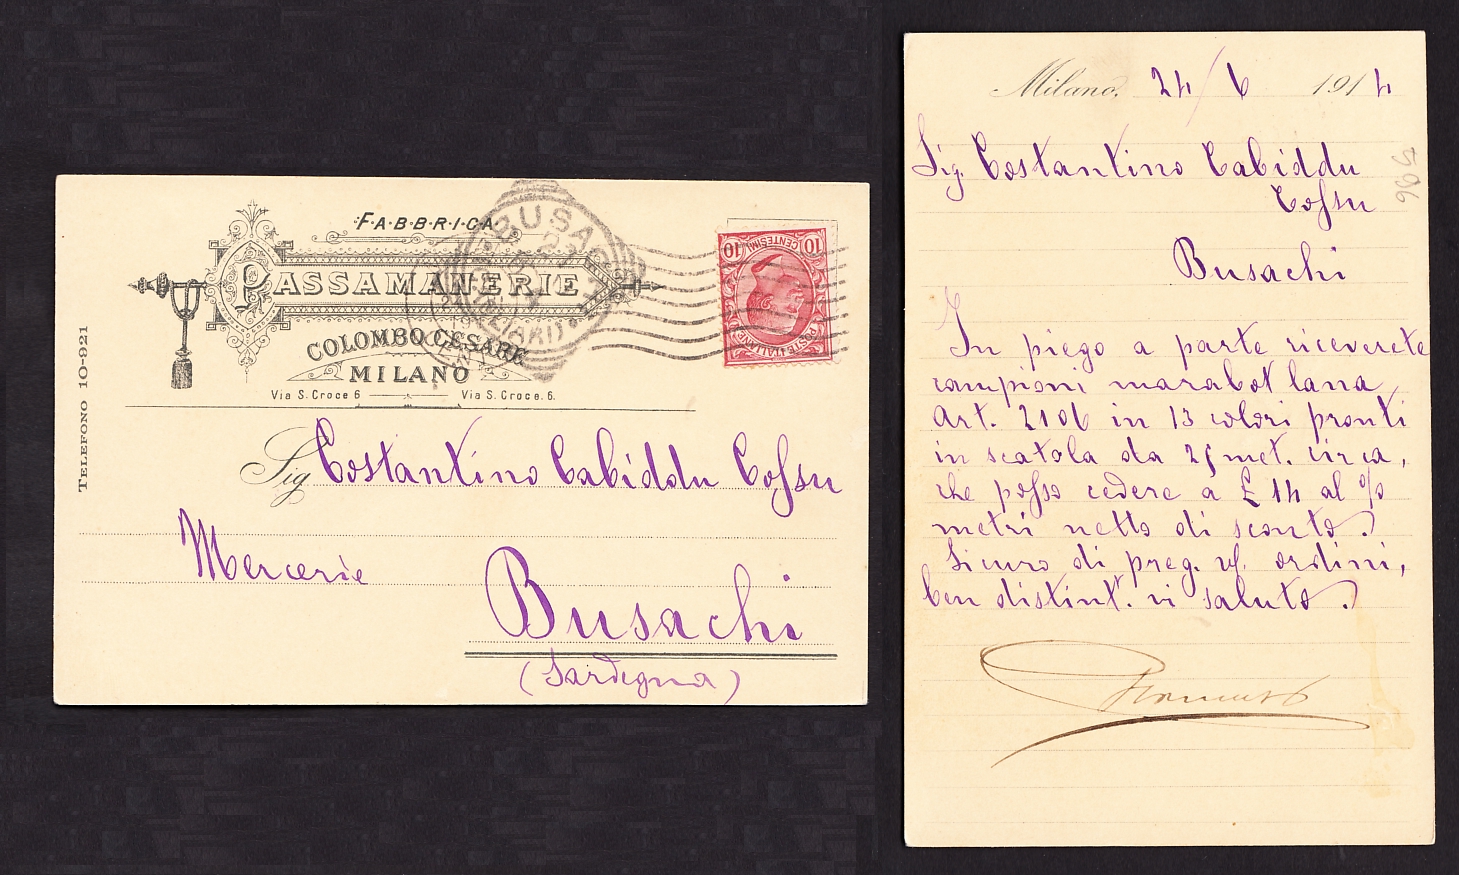 FABBRICA
PASSAMANERIE
COLOMBO CESARE
MILANO
Via S. Croce 6 Via S. Croce. 6.
TELEFONO 10-921
BUSACHI
CAGLIARI
10 CENTESIMI 10
POSTE ITALIANE
Sig Costantino Cabiddu Cossu
Mercerie
Busachi
(Sardegna)
Milano, 24/6 1914
596
Sig. Costantino Cabiddu
Cossu
Busachi
In piego a parte riceverete
campioni marabot lana
Art. 2106 in 13 colori pronti
in scatola da 25 met. circa,
che posso cedere a £ 14 al %
metri netto di sconto.
Sicuro di preg. vs. ordini,
ben distint. vi saluto.